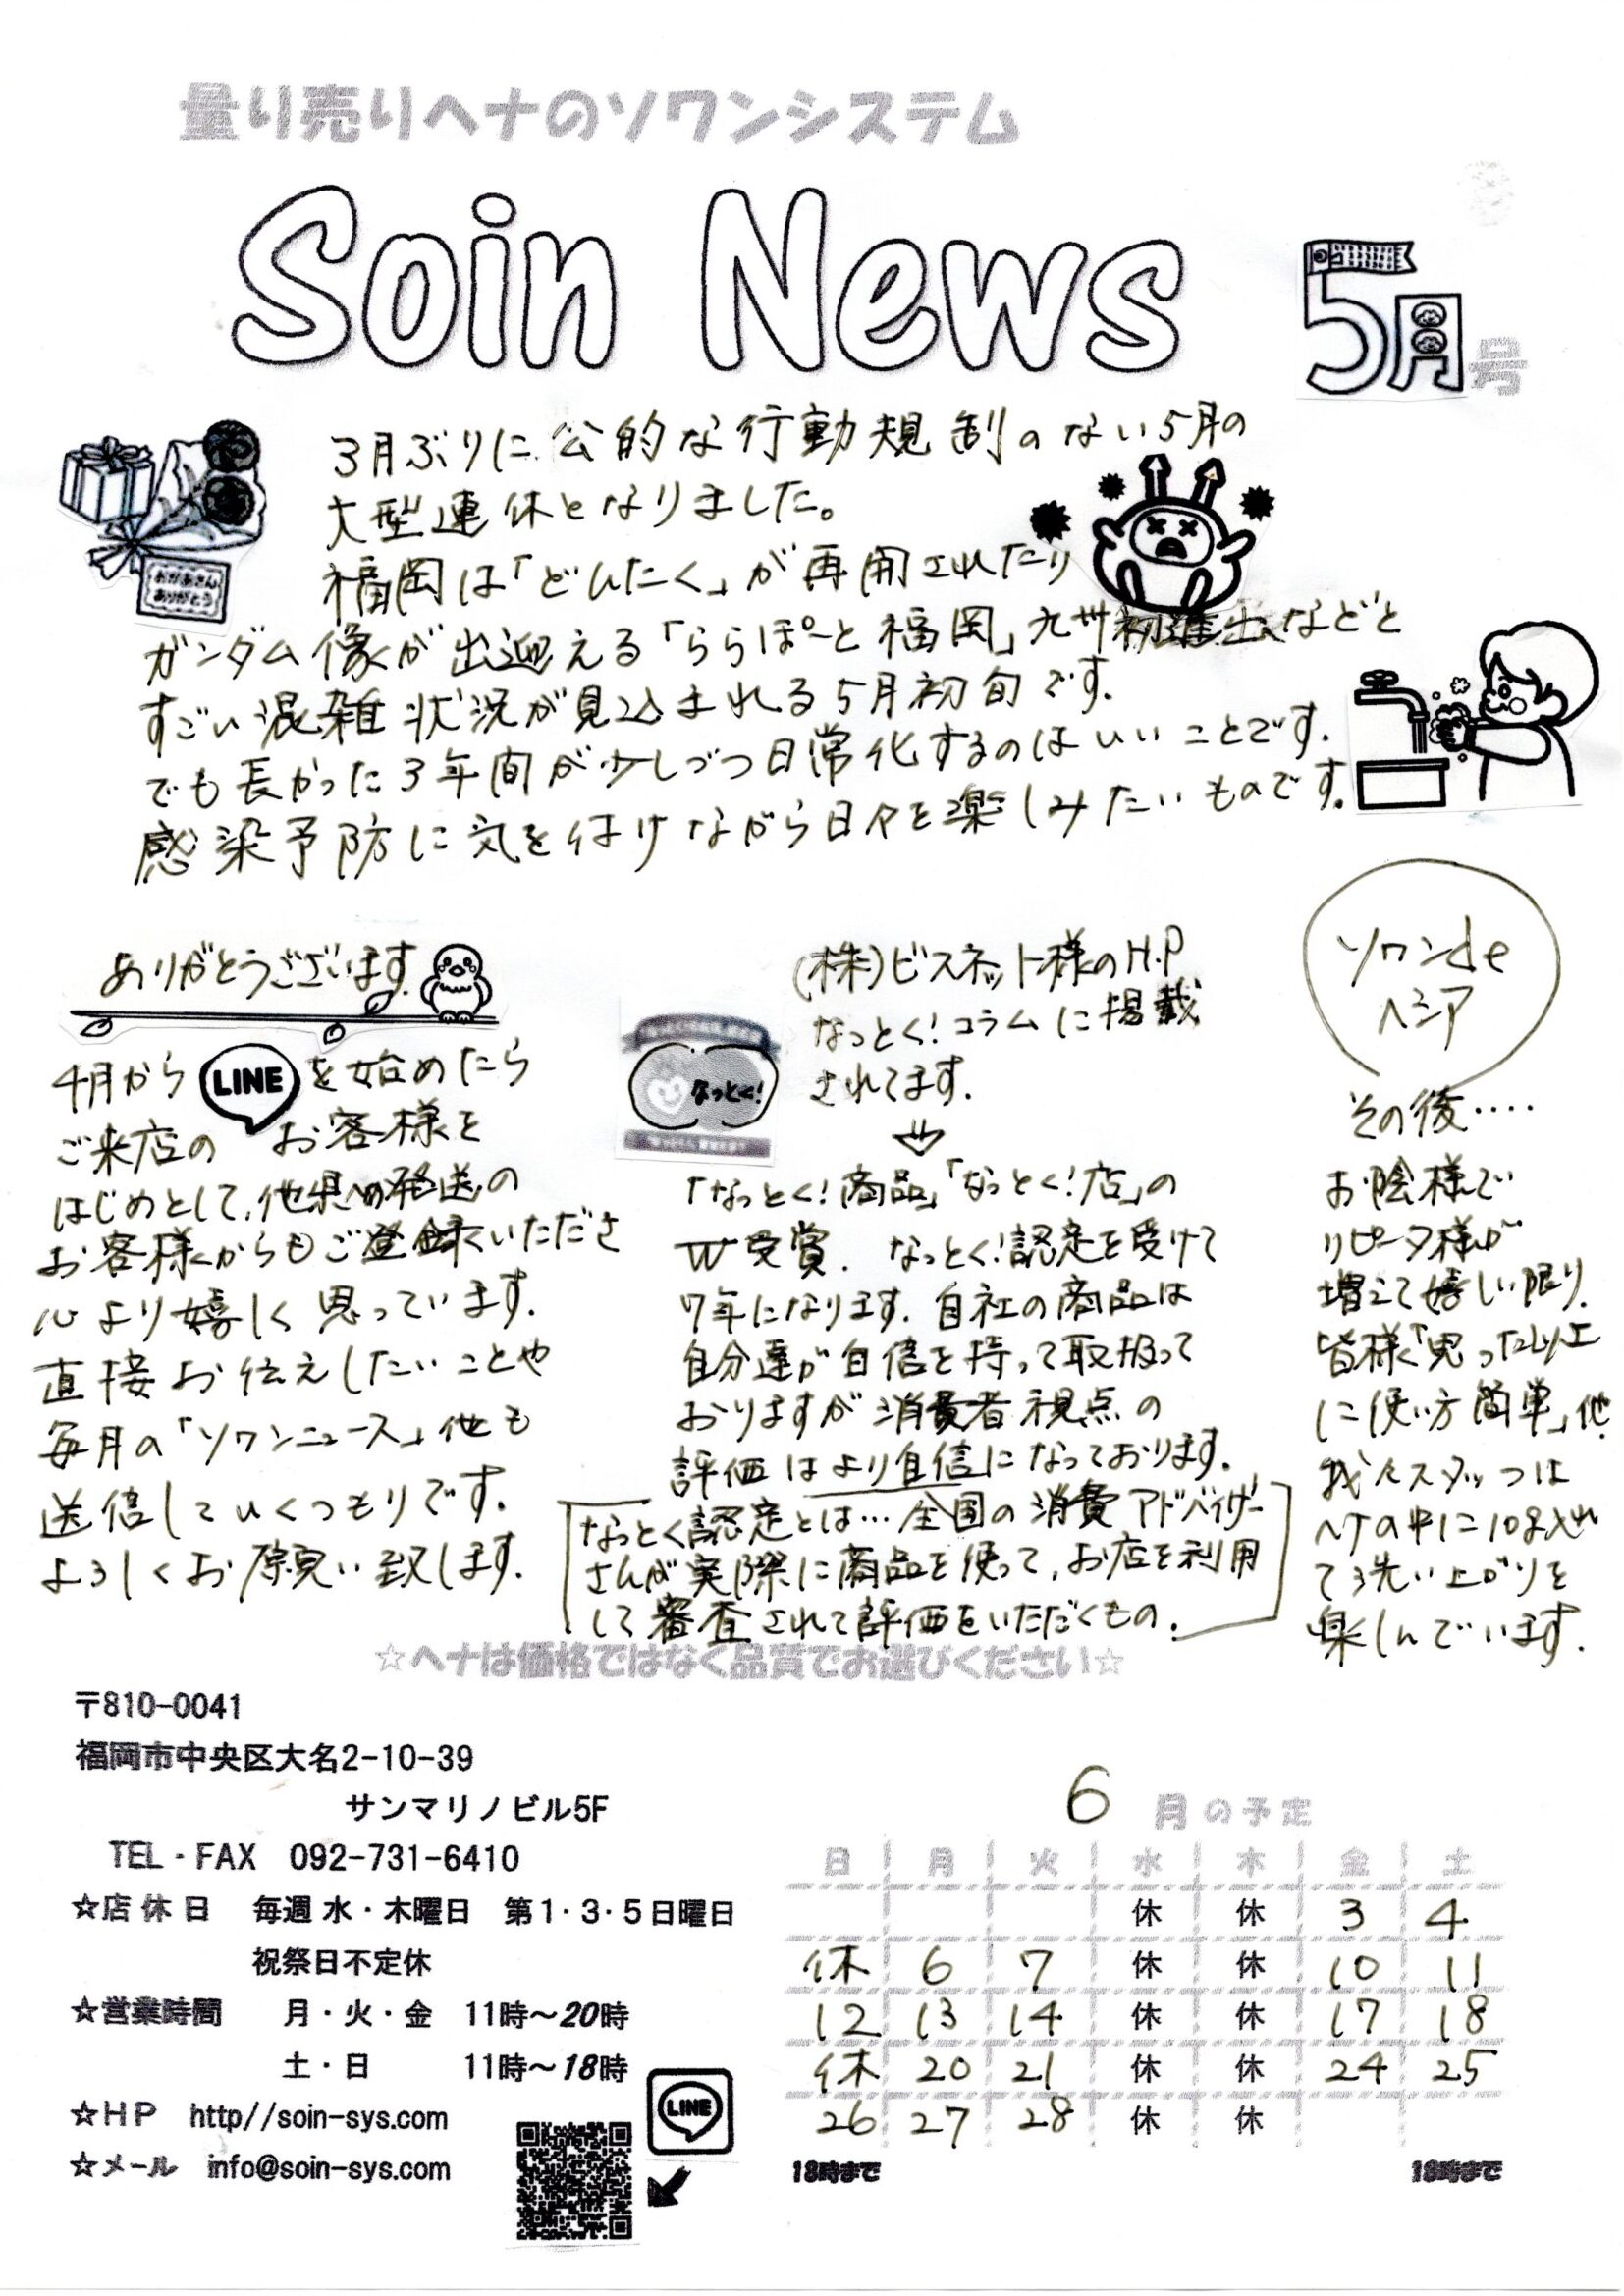 量り売りヘナのソワンシステム
Soin News
5月号
おかあさん
ありがとう
3月ぶりに公的な行動規制のない5月の
大型連休となりました。
福岡は「どんたく」が再開されたり
ガンダム像が出迎える「ららぽーと福岡」九州初進出などと
すごい混雑状況が見込まれる5月初旬です.
でも長かった3年間が少しづつ日常化するのはいいことです.
感染予防に気を付けながら日々を楽しみたいものです.
ありがとうございます.
4月から LINE を始めたら
ご来店の お客様を
はじめとして、他県への発送の
お客様からもご登録いただき
心より嬉しく思っています.
直接お伝えしたいことや
毎月の「ソワンニュース」他も
送信していくつもりです.
よろしくお願い致します.
なっとく!
(株)ビスネット様のH.P
なっとく!コラムに掲載
されてます.
「なっとく!商品」「なっとく!店」の
W受賞. なっとく!認定を受けて
7年になります. 自社の商品は
自分達が自信を持って取扱って
おりますが消費者視点の
評価はより自信になっております.
なっとく認定とは…全国の消費アドバイザー
さんが実際に商品を使って、お店を利用
して審査されて評価をいただくもの.
ソワンde
ヘシア
その後‥‥
お陰様で
リピータ様が
増えて嬉しい限り.
皆様「思った以上
に使い方簡単」他.
我々スタッフは
ヘナの中に10g入れ
て洗い上がりを
楽しんでいます.
☆ヘナは価格ではなく品質でお選びください☆
〒810-0041
福岡市中央区大名2-10-39
サンマリノビル5F
TEL・FAX 092-731-6410
☆店休日 毎週 水・木曜日 第1・3・5日曜日
祝祭日不定休
☆営業時間 月・火・金 11時～20時
土・日 11時～18時
☆HP http//soin-sys.com
☆メール info@soin-sys.com
LINE
6月の予定
日 月 火 水 木 金 土
休 休 3 4
休 6 7 休 休 10 11
12 13 14 休 休 17 18
休 20 21 休 休 24 25
26 27 28 休 休
18時まで 18時まで